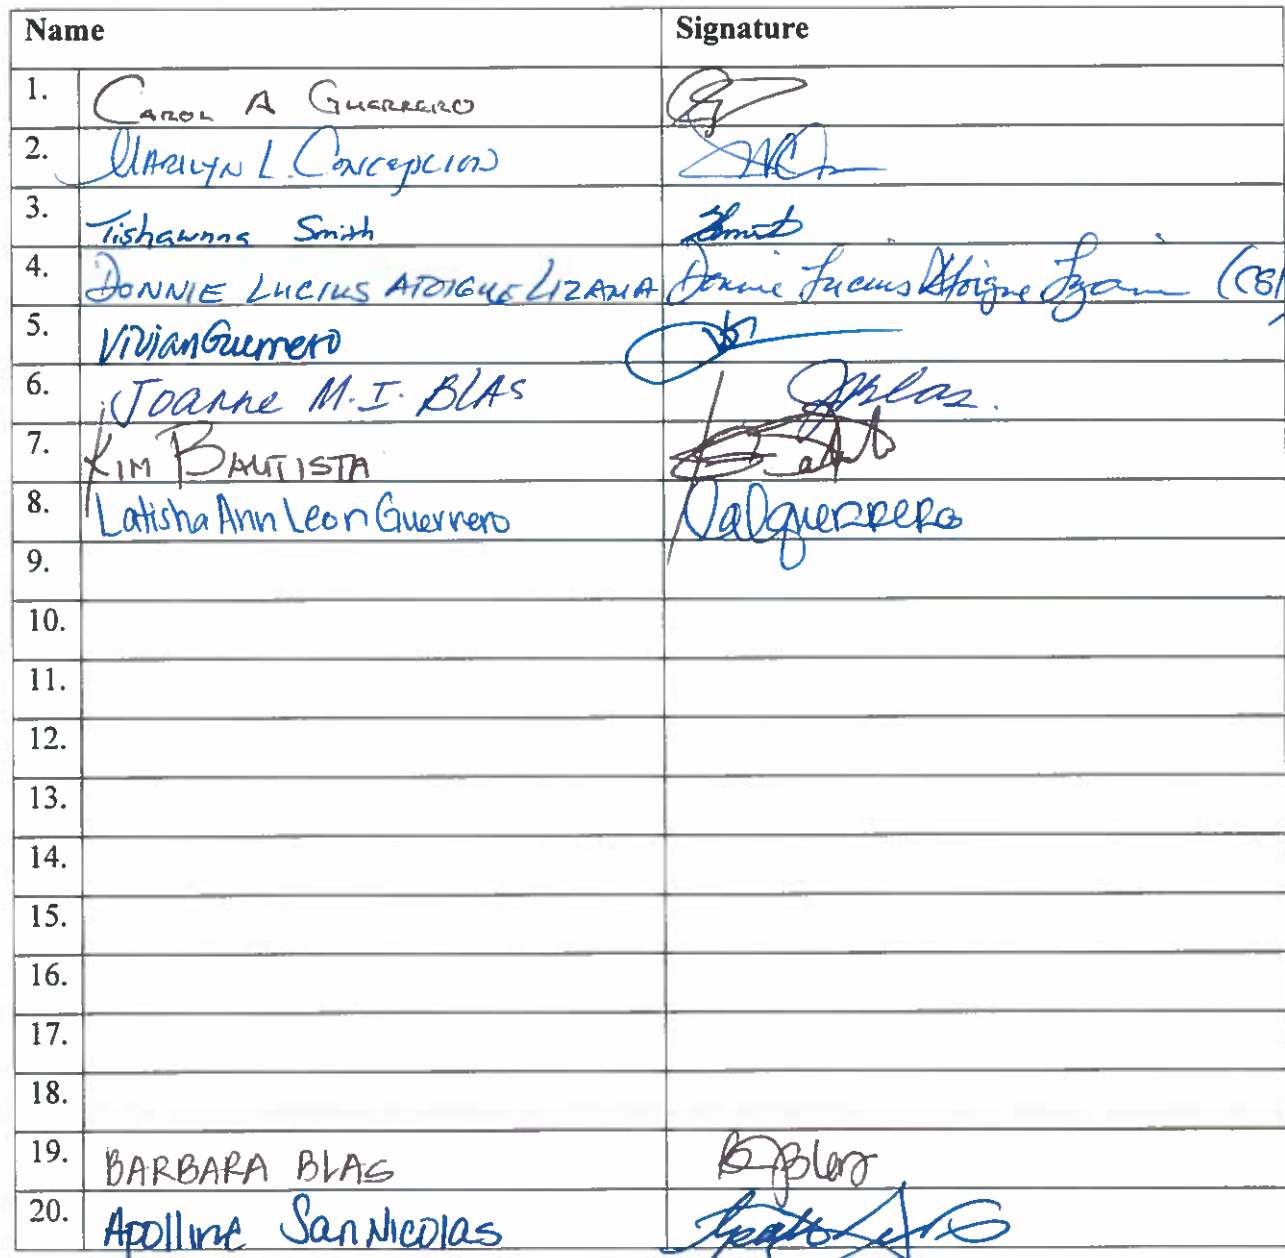 Name Signature
1. Carol A Guerrero
2. Marilyn L. Concepcion
3. Tishawnna Smith Smith
4. Donnie Lucius Atoigue Lizama Donnie Lucius Atoigue Lizama
5. Vivian Guerrero
6. Joanne M.I. Blas JBlas.
7. Kim Bautista
8. Latisha Ann Leon Guerrero Lalguerrero
9.
10.
11.
12.
13.
14.
15.
16.
17.
18.
19. BARBARA BLAS BJBlas
20. Apolline San Nicolas